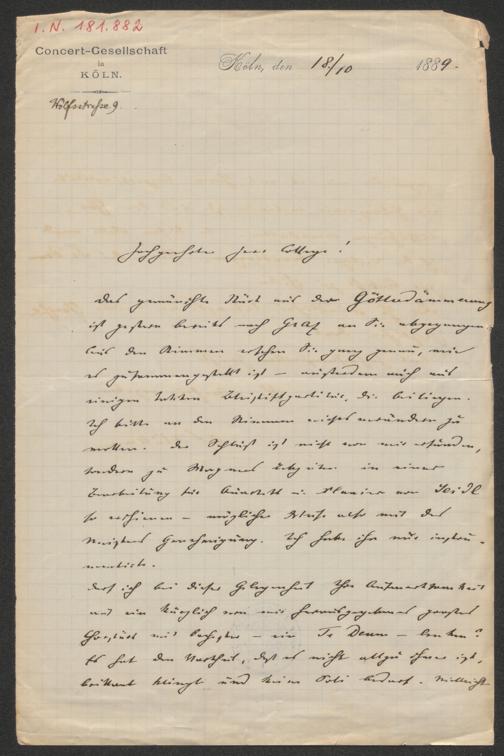 I. N. 181.882
Concert-Gesellschaft
in
KÖLN.
Wolfsstraße 9.
Köln, den 18/10 1889.
Hochgeehrter Herr College!
Das gewünschte Stück aus der Götterdämmerung
ist gestern bereits nach Graz an Sie abgegangen.
Aus den Stimmen ersehen Sie ganz genau, wie
es zusammengestellt ist – außerdem auch aus
einigen Takten Bleistiftpartitur, die beiliegen.
Ich bitte an den Stimmen nichts verändern zu
wollen. Der Schluß ist nicht von mir erfunden,
sondern zu Wagners Lebzeiten in einer
Bearbeitung für Quartett u. Klavier von Seidl
so erschienen – möglicher Weise also mit des
Meisters Genehmigung. Ich habe ihn nur instru-
mentirt.
Darf ich bei dieser Gelegenheit Ihre Aufmerksamkeit
auf ein kürzlich von mir herausgegebenes grosses
Chorstück mit Orchester – ein Te Deum – lenken?
Es hat den Vortheil, daß es nicht allzu schwer ist,
brillant klingt und keine Soli bedarf. Vielleicht